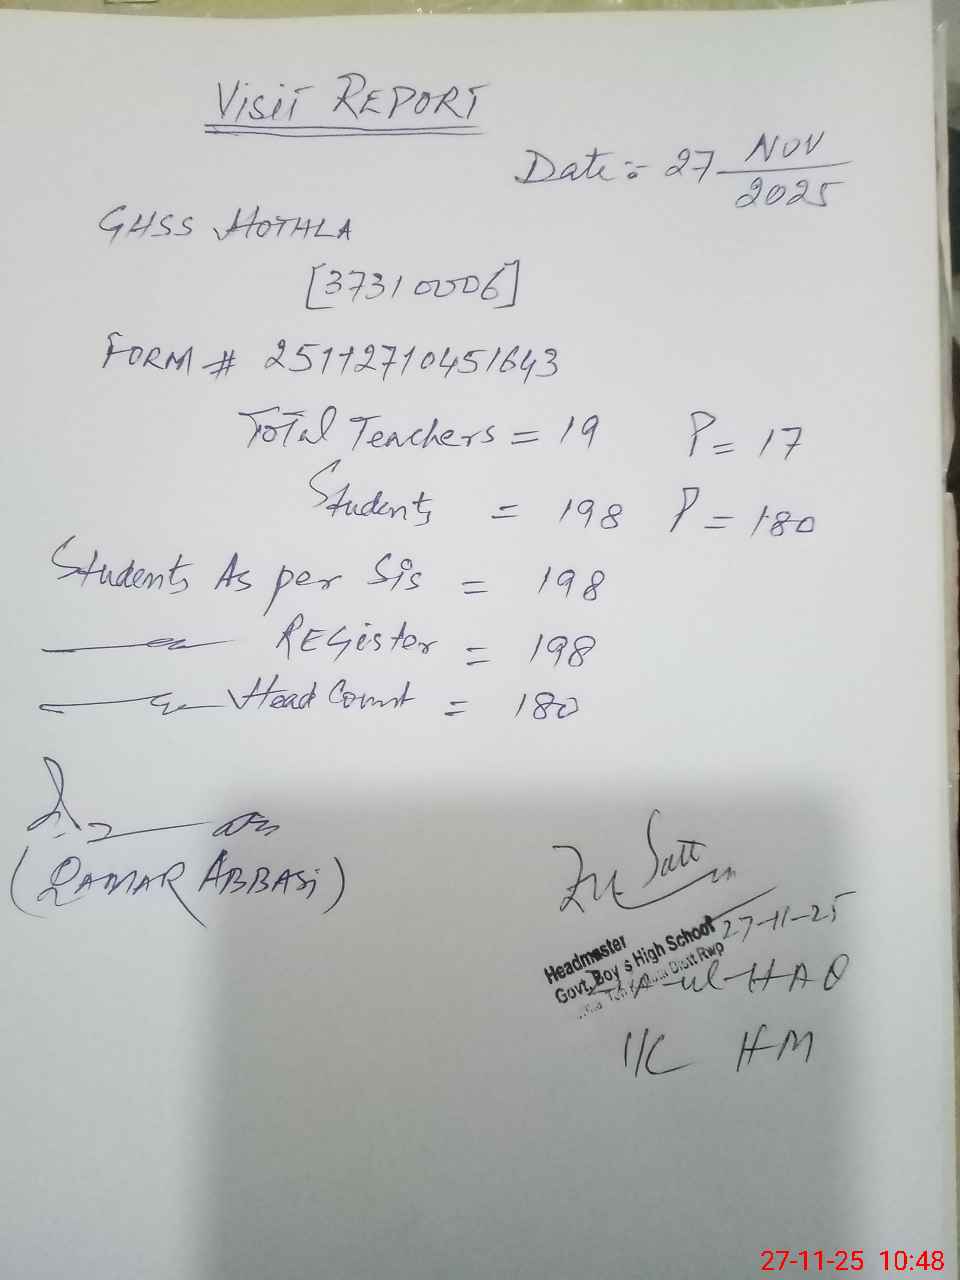 VISIT REPORT
Date:- 27 NOV
2025
GHSS HOTHLA
[37310006]
FORM # 25112710451643
Total Teachers = 19 P = 17
Students = 198 P = 180
Students As per SIS = 198
REGister = 198
Head Count = 180
(QAMAR ABBASi)
27-11-25
Headmaster
Govt, Boy s High School
Distt Rwp
ul-HAQ
I/C HM
27-11-25 10:48